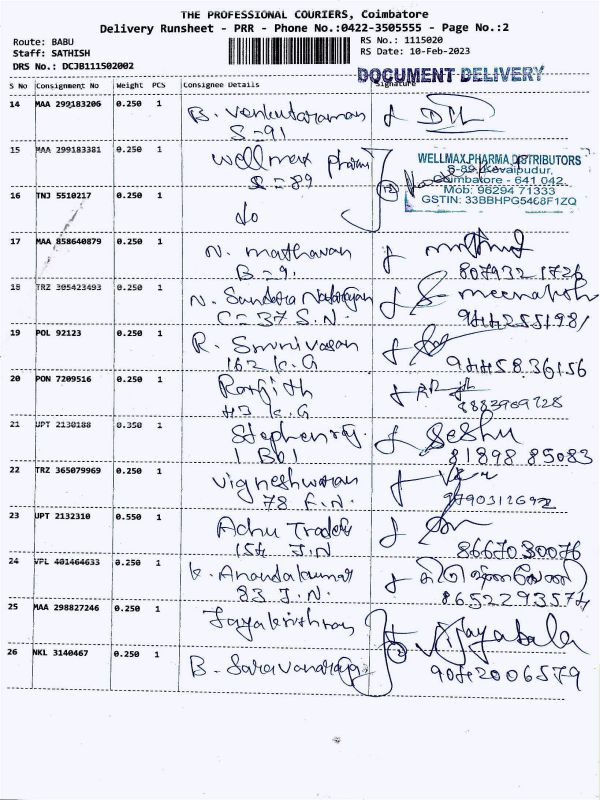 THE PROFESSIONAL COURIERS, Coimbatore
Delivery Runsheet - PRR - Phone No.:0422-3505555 - Page No.:2
Route: BABU
Staff: SATHISH
DRS No.: DCJB111502002
RS No.: 1115020
RS Date: 10-Feb-2023
DOCUMENT DELIVERY
S No Consignment No Weight PCS Consignee Details Signature
14 MAA 299183206 0.250 1 B. Venkutaraman
S-91
15 MAA 299183381 0.250 1 Wellmax pharma
S-89
WELLMAX PHARMA DISTRIBUTORS
S-89, Kovaipudur,
Coimbatore - 641 042
Mob: 96294 71333
GSTIN: 33BBHPG5468F1ZQ
16 TNJ 5510217 0.250 1 do
17 MAA 858640879 0.250 1 N. mathavan
B-9.
807932 1726
18 TRZ 305423493 0.250 1 N. Sundara Natarajan S. meenakshi
C-37 S.N. 9442551981
19 POL 92123 0.250 1 R. Srinivasan
162 K.G 9445836156
20 PON 7209516 0.250 1 Ranjith
43 K.G 8883969728
21 UPT 2130188 0.350 1 Stephenraj Seshu
1 BB1 81898 85083
22 TRZ 365079969 0.250 1 Vigneshwaran
78 F.N. 9790312692
23 UPT 2132310 0.550 1 Achu Traders
154 J.N 8667030076
24 VPL 401464633 0.250 1 K. Anandakumar
83 J.N. 8652293574
25 MAA 298827246 0.250 1 Jayakrishnan
Vijayabala
26 NKL 3140467 0.250 1 B. Saravanaraj
9042006579